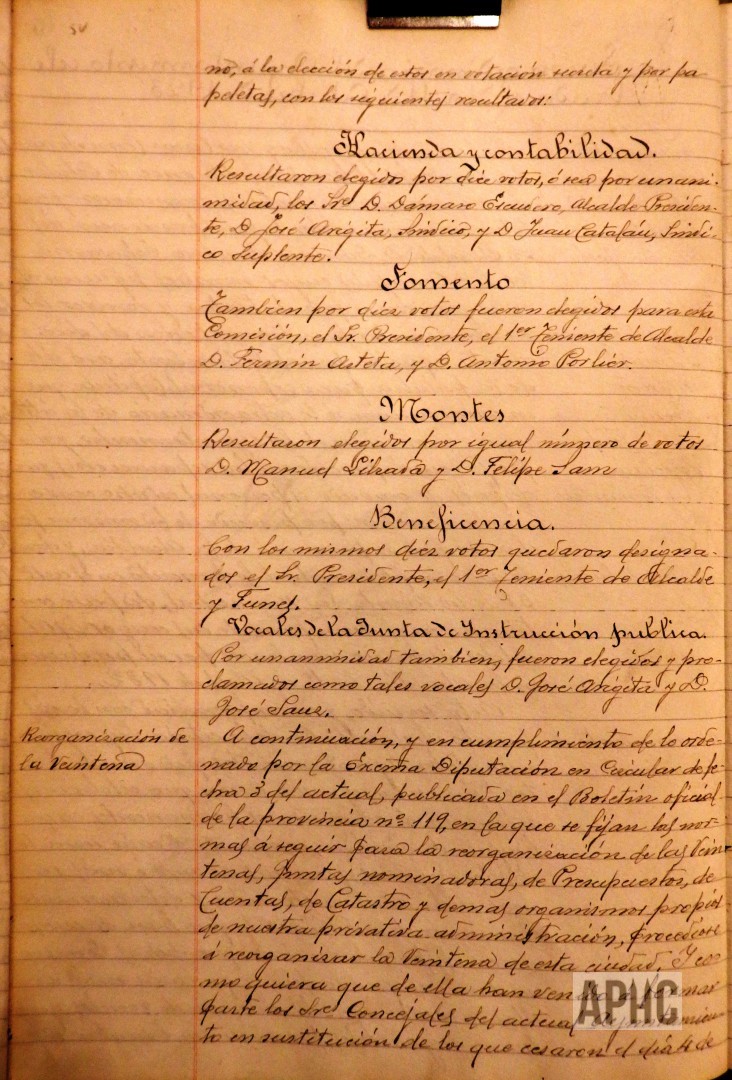 no, á la elección de estos en votación secreta y por pa
peletas, con los siguientes resultados:
Hacienda y contabilidad.
Resultaron elegidos por diez votos, ó sea por unani-
midad, los Sres D. Dámaso Escudero, Alcalde-Presiden-
te, D. José Arigita, Síndico, y D. Juan Catalán, Síndi-
co suplente.
Fomento
Tambien por diez votos fueron elegidos para esta
Comisión, el Sr. Presidente, el 1er Teniente de Alcalde
D. Fermín Asteta, y D. Antonio Porlier.
Montes
Resultaron elegidos por igual número de votos
D. Manuel y D. Felipe
Beneficencia.
Con los mismos diez votos quedaron designa-
dos el Sr. Presidente, el 1er Teniente de Alcalde
y Funes.
Vocales de la Junta de Instrucción publica.
Por unanimidad tambien, fueron elegidos y pro-
clamados como tales vocales D. José Arigita y D.
José Sanz.
Reorganización de
la Veintena
A continuación, y en cumplimiento de lo orde-
nado por la Excma Diputación en Circular de fe-
cha 3 del actual, publicada en el Boletín oficial
de la provincia nº 119, en la que se fijan las nor-
mas á seguir para la reorganización de las Vein-
tenas, Juntas nominadoras, de Presupuestos, de
Cuentas, de Catastro y demas organismos propios
de nuestra privativa administración, procediose
á reorganizar la Veintena de esta ciudad. Y co-
mo quiera que de ella han venido a formar
parte los Sres Concejales del actual Ayuntamien-
to en sustitución de los que cesaron el día 4 de
APHC